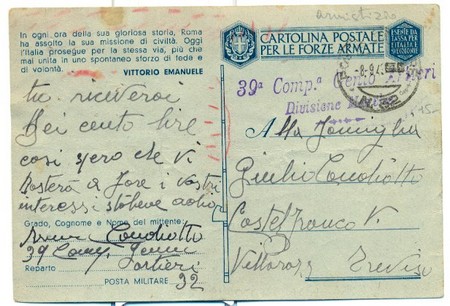 In ogni ora della sua gloriosa storia, Roma
ha assolto la sua missione di civiltà. Oggi
l'Italia prosegue per la stessa via, più che
mai unita in uno spontaneo sforzo di fede e
di volontà.
VITTORIO EMANUELE
tu riceverai
Sei cento lire
così spero che vi
a fare i vostri
interessi
Grado, Cognome e Nome del mittente:
39 Comp. Genio
Reparto
Artieri
POSTA MILITARE 32
armistizio
CARTOLINA POSTALE
PER LE FORZE ARMATE
ESENTE DA
TASSA PER
L'ITALIA E
COLONIE
39ª Comp.ª Genio Artieri
Divisione
N. 32
Alla Famiglia
Castelfranco V.
Treviso